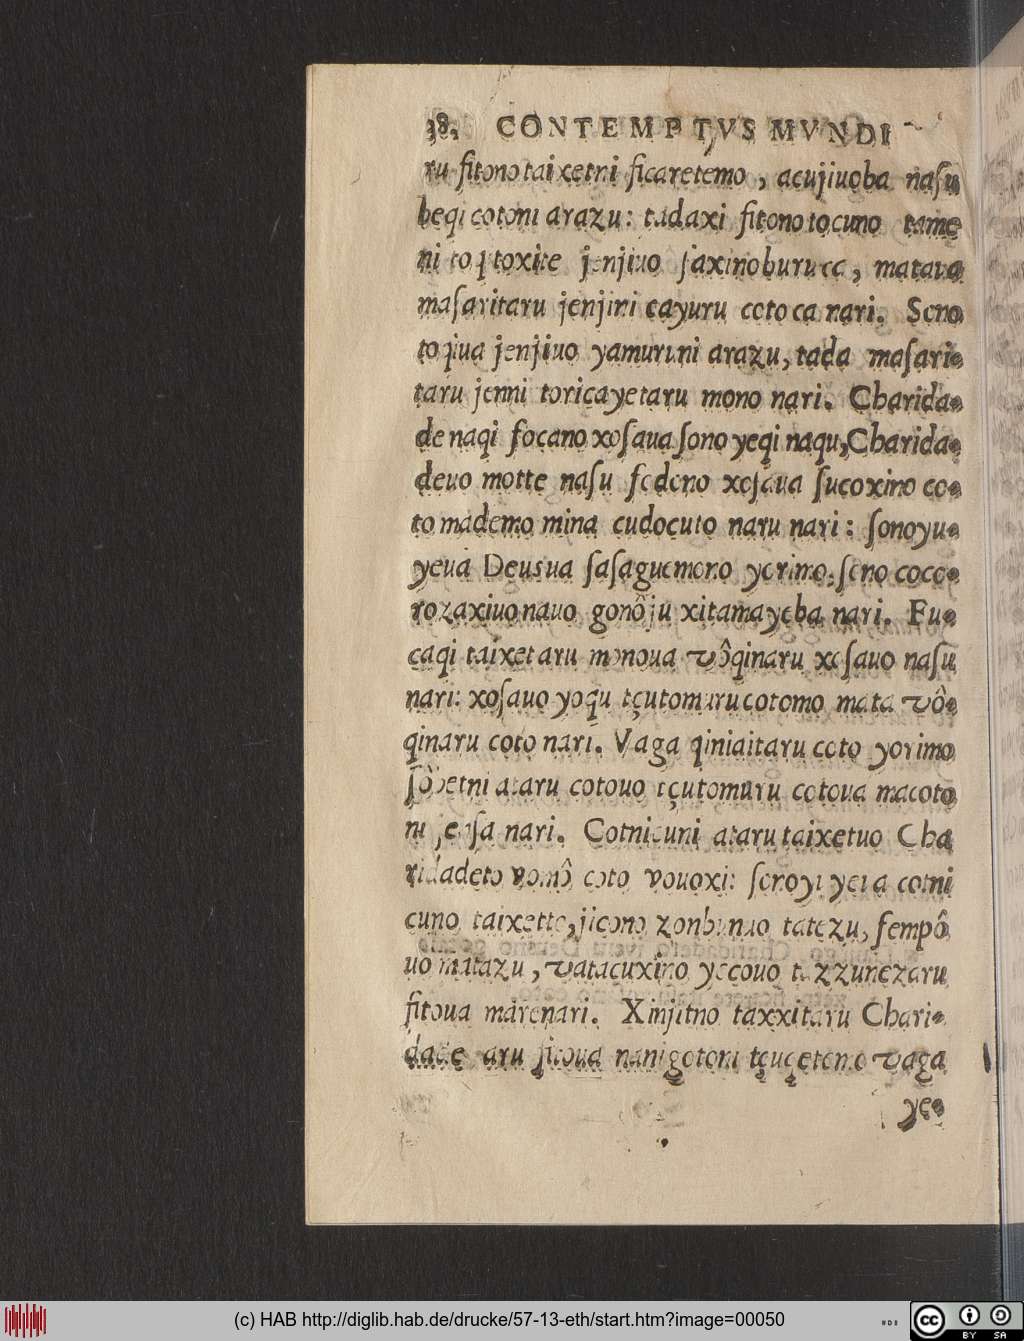 38. CONTEMPTVS MVNDI
ru fitono taixetni ficaretemo, acujiuoba naſu
beqi cotoni arazu: tadaxi fitono tocuno tame
ni to ptoxite jenjiuo ſaxinoburuca, mataua
maſaritaru jenjini cayuru coto ca nari. Sono
toqiua jenjiuo yamuruni arazu, tada maſari-
taru jenni toricayetaru mono nari. Charida-
de naqi focano xoſaua ſono yeqi naqu, Charida-
deuo motte naſu fodono xoſaua ſucoxino co-
to mademo mina cudocuto naru nari: ſonoyu-
yeua Deusua ſaſaguemono yorimo, ſono coco-
rozaxiuo nauo gonôju xitamayeba nari. Fu-
caqi taixetaru monoua vôqinaru xoſauo naſu
nari: xoſauo yoqu tçutomurucotomo mata vô-
qinaru coto nari. Vaga qiniaitaru coto yorimo
ſôbetni ataru cotouo tçutomuru cotoua macoto
ni jenſa nari. Cotnicuni ataru taixetuo Cha
ridadeto vomô coto vouoxi: ſonoyuyeua cotni
cuno taixetto, jicono zonbunuo tatezu, fempô
uo matazu, vatacuxino yocouo tazzunezaru
fitoua marenari. Xinjitno taxxitaru Chari-
dade aru fitoua nanigotoni tçuqetemo vaga
ye-
(c) HAB http://diglib.hab.de/drucke/57-13-eth/start.htm?image=00050
CC BY SA